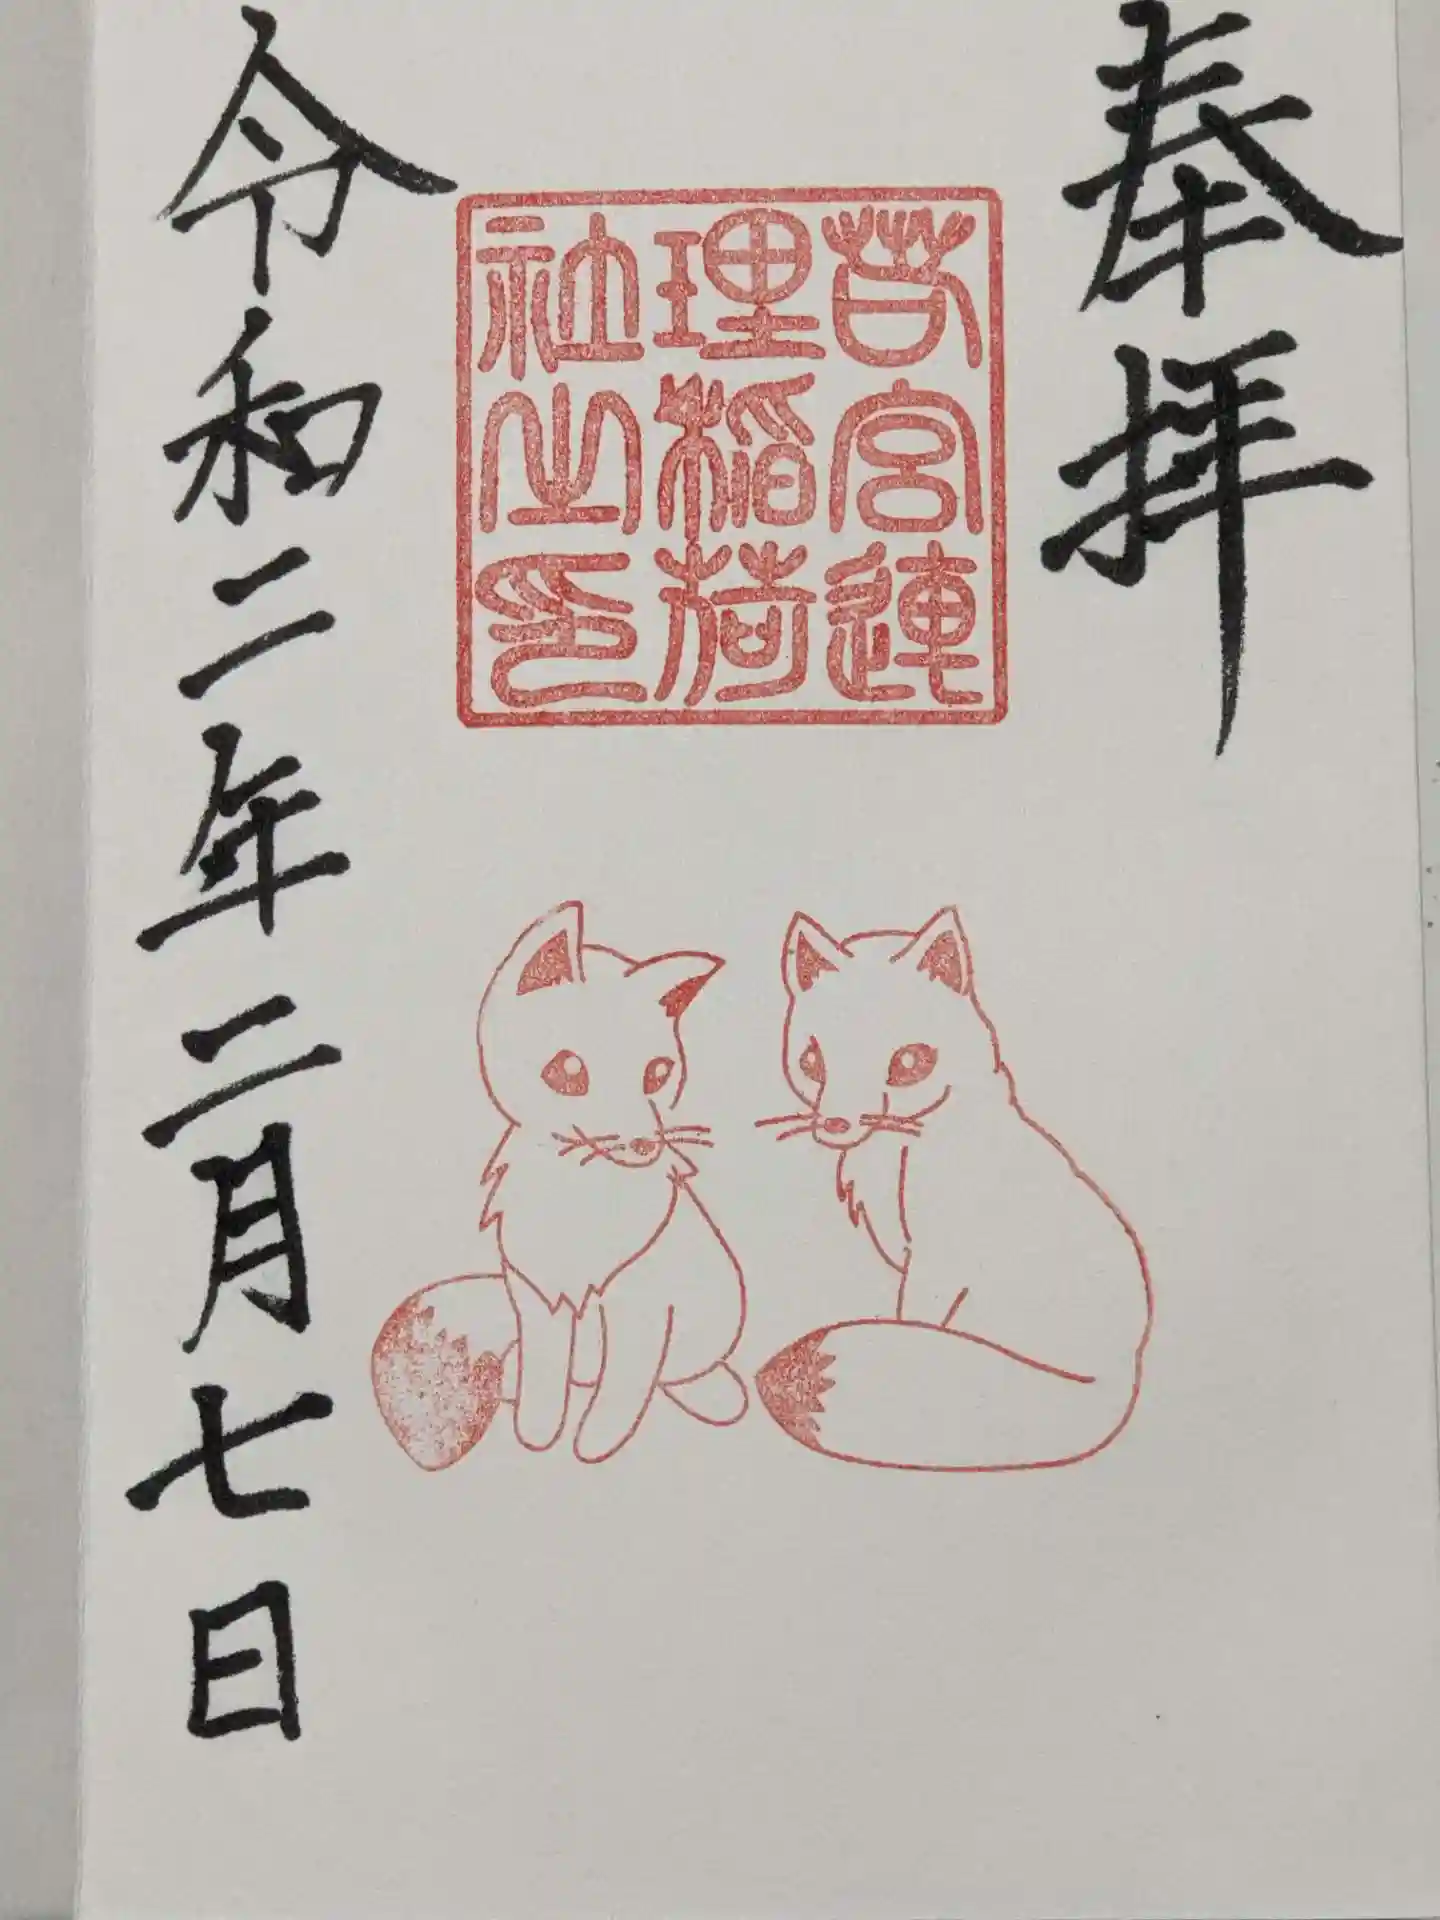 奉拝
若宮連
理稲荷
社之印
令和二年二月七日